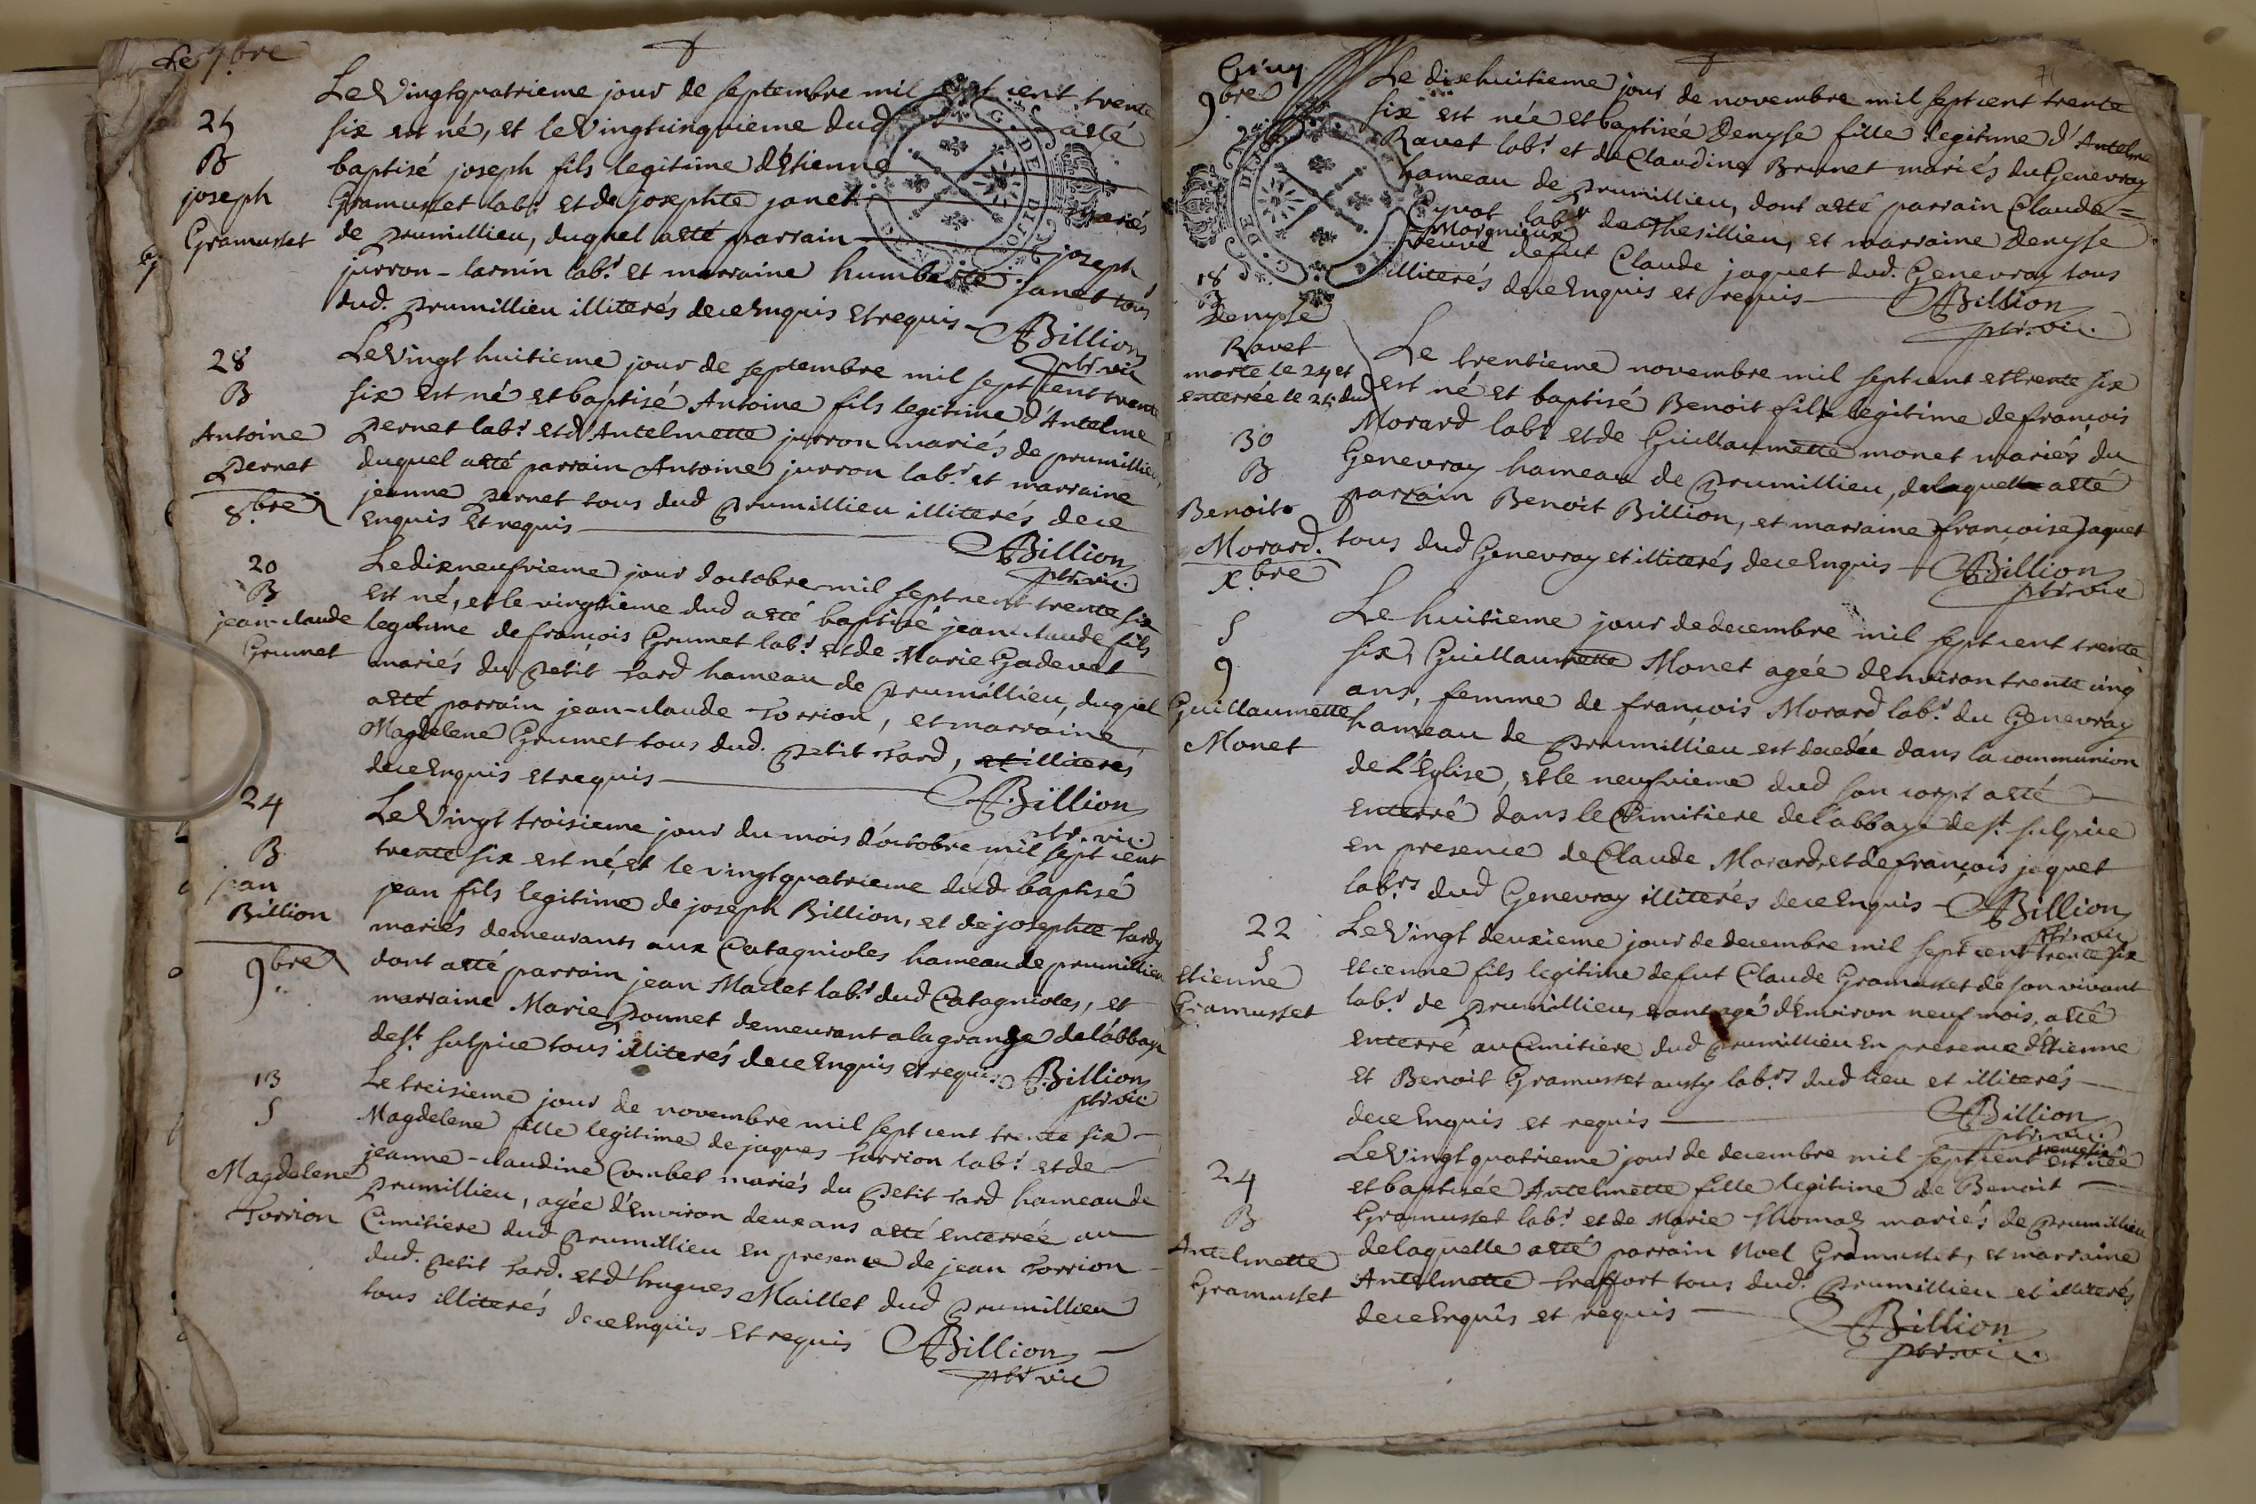 Le 7.bre
25
B
joseph
Gramusset
Le Vingtquatrieme jour de septembre mil sept cent trente
six est né, et le Vingtcinquieme dud a esté
baptisé joseph fils legitime d'Etienne
Gramusset labr. et de josephte janet mariés
de prumillieu, duquel a esté parrain joseph
jurron-larnin labr. et marraine humberte janet tous
dud. prumillieu illiterés de ce Enquis et requis Billion
ptr. vic
28
B
Antoine
Pernet
8.bre
Le Vingt huitieme jour de septembre mil sept cent trente
six est né et baptisé Antoine fils legitime d'Antelme
Pernet labr. et d'Antelmette jurron mariés de prumillieu,
duquel a esté parrain Antoine jurron labr. et marraine
jeanne Pernet tous dud prumillieu illiterés de ce
Enquis et requis
Billion
ptr. vic.
20
B
jean-claude
Grumet
Le dixneufvieme jour d'octobre mil sept cent trente six
est né, et le vingtieme dud a esté baptisé jean claude fils
legitime de françois Grumet labr. et de Marie Gadevet
mariés du Petit Tard hameau de prumillieu, duquel
a esté parrain jean-claude Torrion, et marraine
Magdelene Grumet tous dud. Petit Tard, et illiterés
de ce Enquis et requis Billion
ptr. vic.
24
B
jean
Billion
9.bre
Le Vingt troisieme jour du mois d'octobre mil sept cent
trente six est né, et le vingtquatrieme dud baptisé
jean fils legitime de joseph Billion, et de josephte Tardy
mariés demeurants aux Catagnioles hameau de prumillieu
dont a esté parrain jean Maclet labr. dud Catagnioles, et
marraine Marie Ponnet demeurant a la grange de l'abbaye
de st. sulpice tous illiterés de ce Enquis et requis Billion
ptr. vic
13
S
Magdelene
Torrion
Le treisieme jour de novembre mil sept cent trente six
Magdelene fille legitime de jaques Torrion labr. et de
jeanne-claudine Combet mariés du Petit Tard hameau de
prumillieu, agée d'Environ deux ans a esté enterrée au
Cimitiere dud prumillieu en presence de jean Torrion
dud. Petit Tard. et d'hugues Maillet dud prumillieu
tous illiterés de ce Enquis et requis Billion
ptr vic
9.bre
18
B
Denyse
Ravet
morte le 24 et
enterrée le 25 dud
Le dixhuitieme jour de novembre mil sept cent trente
six est née et baptisée Denyse fille legitime d'Antelme
Ravet labr. et de Claudine Brunet mariés du Genevray
hameau de prumillieu, dont a esté parrain Claude
Cyvot labr. de Thesillieu, et marraine denyse
Morgnieux
veuve de fut Claude jaquet dud. Genevray tous
illiterés de ce Enquis et requis Billion
ptr. vic.
30
B
Benoit
Morard.
x.bre
Le trentieme novembre mil sept cent et trente six
est né et baptisé Benoit fils legitime de françois
Morard labr. et de Guillaumette monet mariés du
Genevray hameau de Prumillieu, de laquelle a esté
parrain Benoit Billion, et marraine françoise jaquet
tous dud Genevray et illiterés de ce Enquis Billion
ptr. vic
S
9
Guillaumette
Monet
Le huitieme jour de decembre mil sept cent trente
six, Guillaumette Monet agée d'Environ trente cinq
ans, femme de françois Morard labr. du Genevray
hameau de prumillieu est decedée dans la communion
de L'Eglise, et le neufvieme dud son corps a esté
enterré dans le Cimitiere de l'abbaye de st. sulpice
en presence de Claude Morard, et de françois jaquet
labrs. dud Genevray illiterés de ce Enquis Billion
ptr. vic
22
S
Etienne
Gramusset
Le Vingt deuxieme jour de decembre mil sept cent trente six
etienne fils legitime de fut Claude Gramusset de son vivant
labr. de Prumillieu, etant agé d'Environ neuf mois, a esté
enterré au Cimitiere dud prumillieu en presence d'Etienne
et Benoit Gramusset aussy labrs. dud lieu et illiterés
de ce Enquis et requis Billion
ptr. vic.
24
B
Antelmette
Gramusset
trente six
Le Vingt quatrieme jour de decembre mil sept cent est née
et baptisée Antelmette fille legitime de Benoit
Gramusset labr. et de Marie Thomas mariés de Prumillieu
de laquelle a esté parrain Noel Gramusset, et marraine
Antelmette treffort tous dud. Prumillieu et illiterés
de ce Enquis et requis
Billion
ptr. vic.